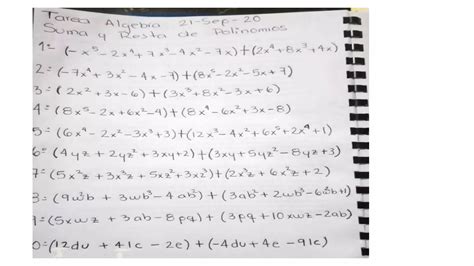 Tarea Algebra 21-Sep-20
Suma y Resta de Polinomios
1=(-x⁵-2x⁴+7x³-4x²-7x)+(2x⁴+8x³+4x)
2=(-7x⁴+3x²-4x-7)+(8x⁵-2x²-5x+7)
3=(2x²+3x-6)+(3x³+8x²-3x+6)
4=(8x⁵-2x+6x²-4)+(8x⁴-6x²+3x-8)
5=(6x⁴-2x²-3x³+3)+(12x³-4x²+6x⁵+2x⁴+1)
6=(4yz+2yz²+3xy+2)+(3xy+5yz²-8yz+3)
7=(5x²z+3x³z+5xz²+3xz³)+(2x³z+6x²z+2)
8=(9w²b+3wb³-4ab²)+(3ab²+2wb³-6w²b+1)
9=(5xwz+3ab-8pq)+(3pq+10xwz-2ab)
0=(12du+41c-2e)+(-4du+4e-91c)